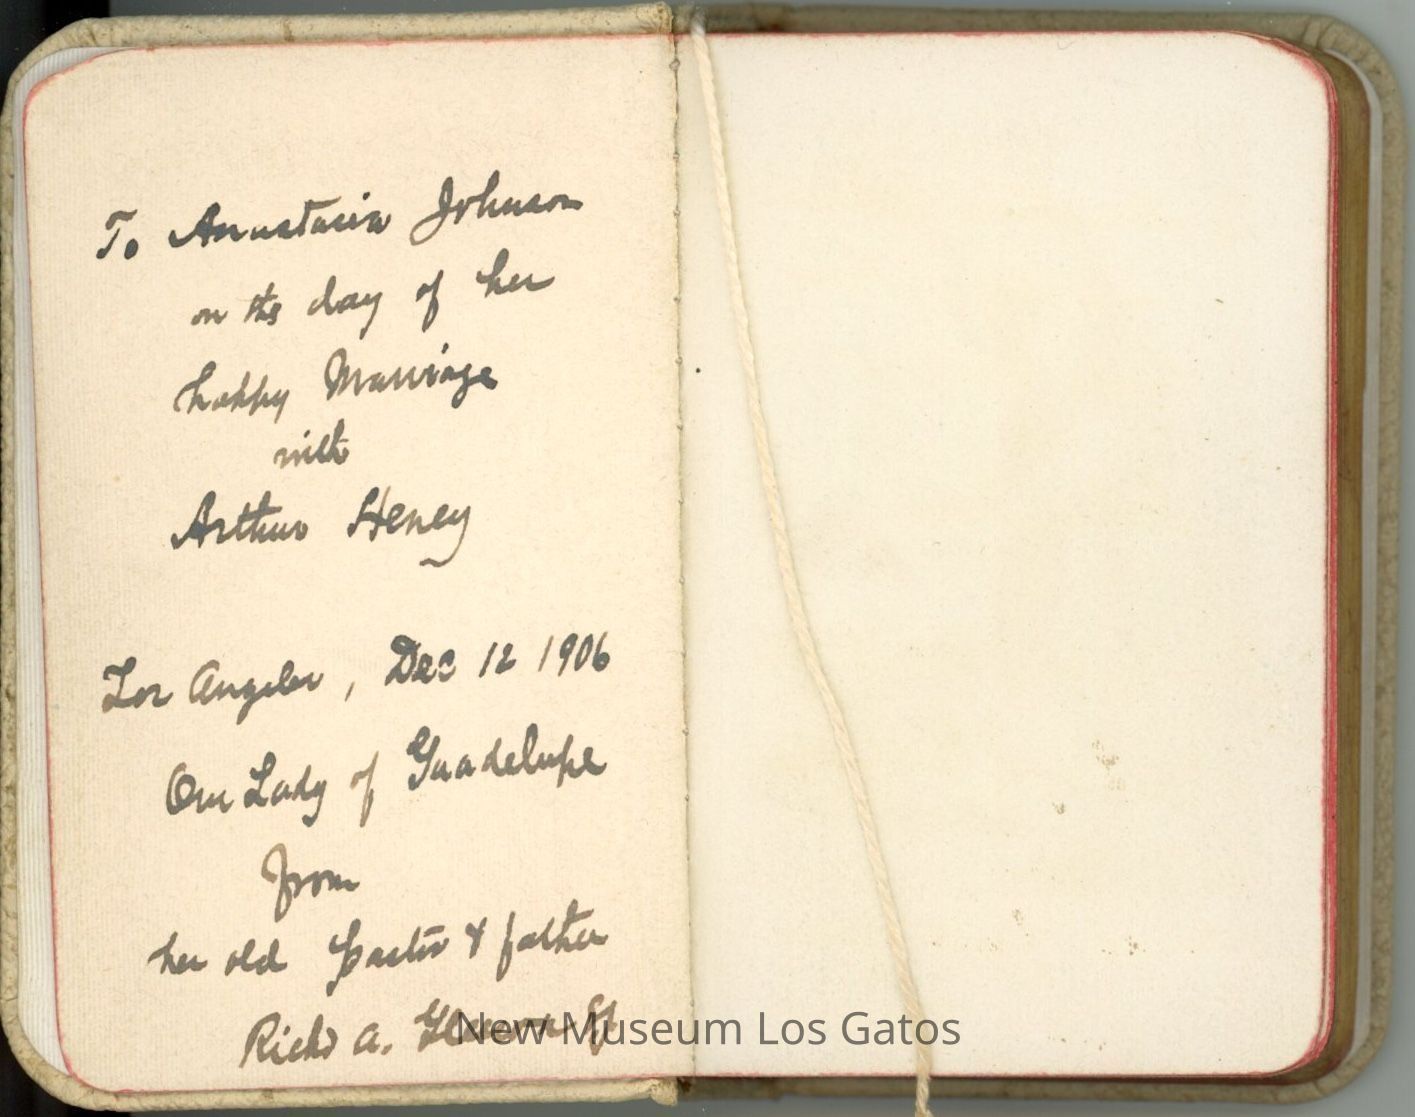 To Anastasia Johnson
on the day of her
happy Marriage
with
Arthur Heney
Los Angeles, Dec 12 1906
Our Lady of Guadelupe
from
her old Pastor & father
Richd A.
New Museum Los Gatos